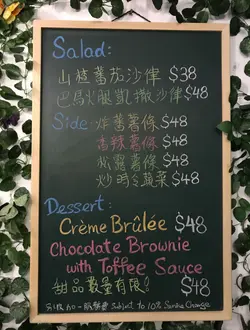 Salad:
山核蕃茄沙律 $38
巴馬火腿凱撒沙律 $48
Side: 炸蕃薯條 $48
香辣薯條 $48
松露薯條 $48
炒時令蔬菜 $48
Dessert:
Crème Brûlée $48
Chocolate Brownie
with Toffee Sauce $48
甜品數量有限?
另收加一服務費 Subject to 10% Service Charge